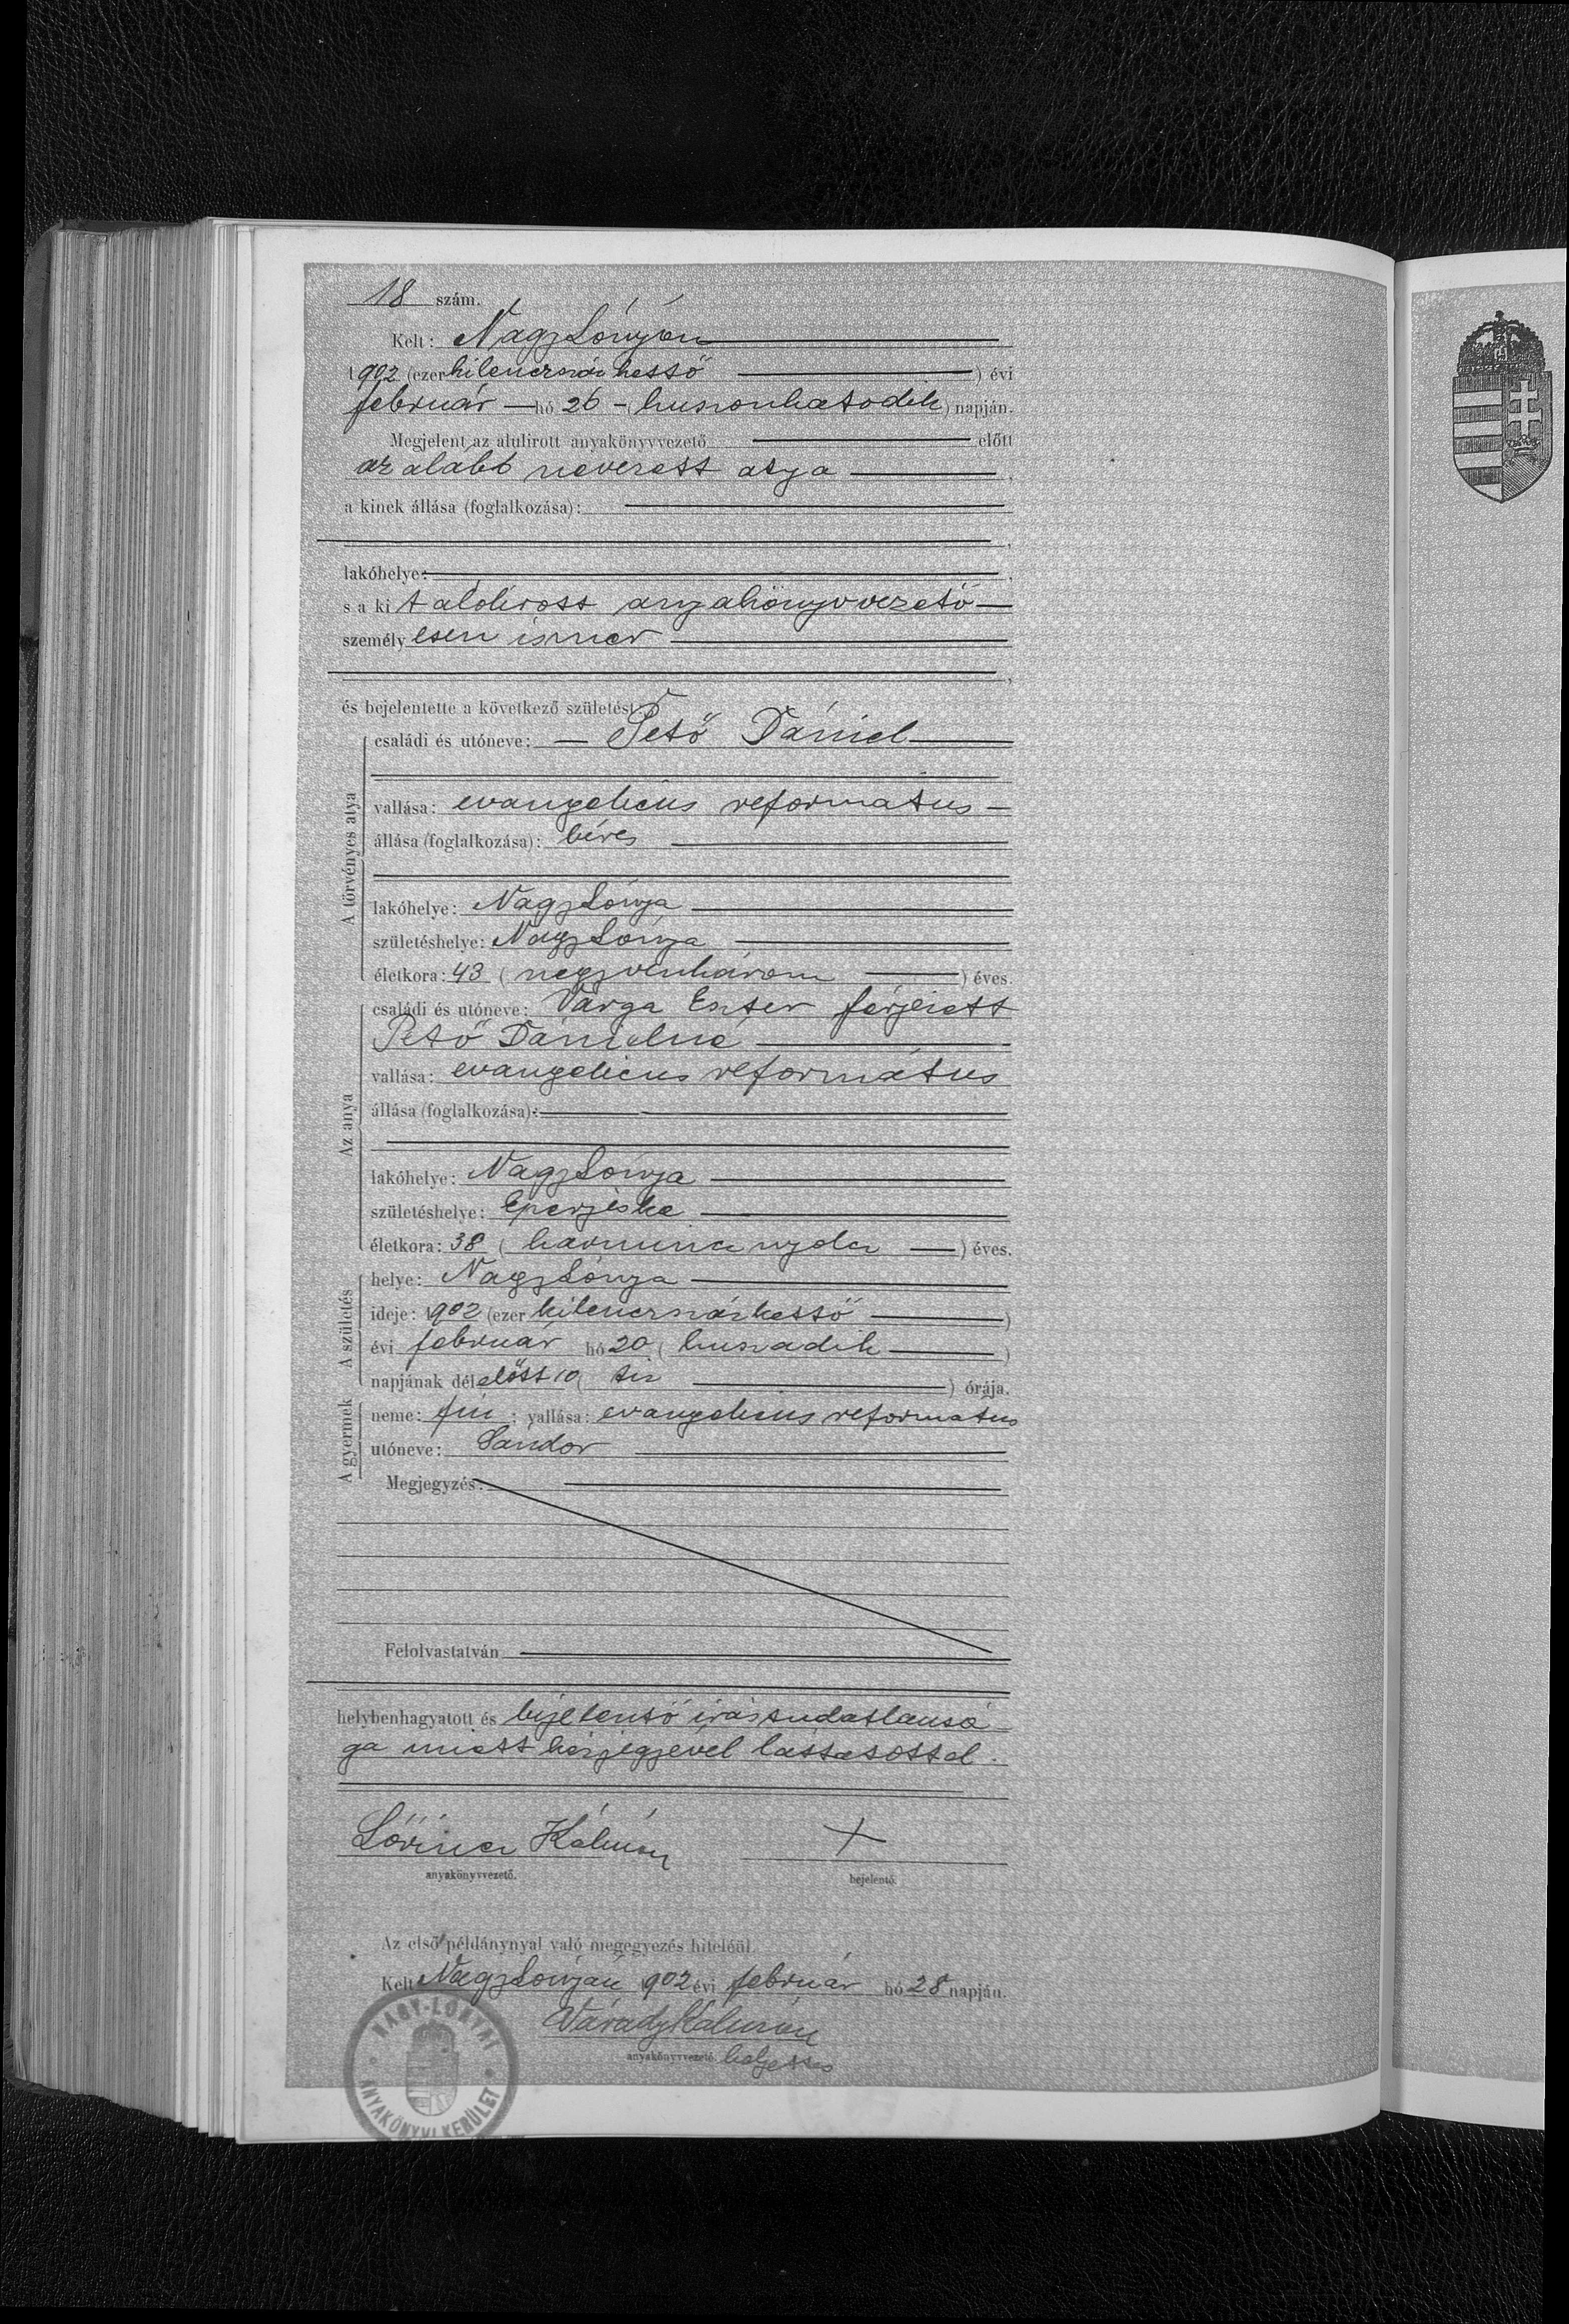 18 szám.
Kelt: Nagylónyán
1902 (ezer kilenczszázkettő) évi
február hó 26 (huszonhatodik) napján.
Megjelent az alulirott anyakönyvvezető előtt
az alább nevezett atya,
a kinek állása (foglalkozása):
lakóhelye:
s a kit alólirott anyakönyvvezető
személyesen ismer
és bejelentette a következő születést:
A törvényes atya
családi és utóneve: Pető Dániel
vallása: evangelicus református
állása (foglalkozása): béres
lakóhelye: Nagylónya
születéshelye: Nagylónya
életkora: 43 (negyvenhárom) éves.
Az anya
családi és utóneve: Varga Eszter férjezett
Pető Dánielné
vallása: evangelicus református
állása (foglalkozása):
lakóhelye: Nagylónya
születéshelye: Eperjeske
életkora: 38 (harmincz nyolcz) éves.
A születés
helye: Nagylónya
ideje: 1902 (ezer kilenczszázkettő)
évi február hó 20 (huszadik)
napjának délelőtt 10 (tiz) órája.
A gyermek
neme: fiú; vallása: evangelicus református
utóneve: Sándor
Megjegyzés:
Felolvastatván
helybenhagyatott és bejelentő irástudatlansá-
ga miatt kézjegyével láttatottel.
Lőrincz Kálmán +
anyakönyvvezető. bejelentő.
Az első példánynyal való megegyezés hiteléül.
Kelt Nagylónyán 1902 évi február hó 28 napján.
Várady Kálmán
anyakönyvvezető helyettes
NAGY-LÓNYAI
ANYAKÖNYVI KERÜLET